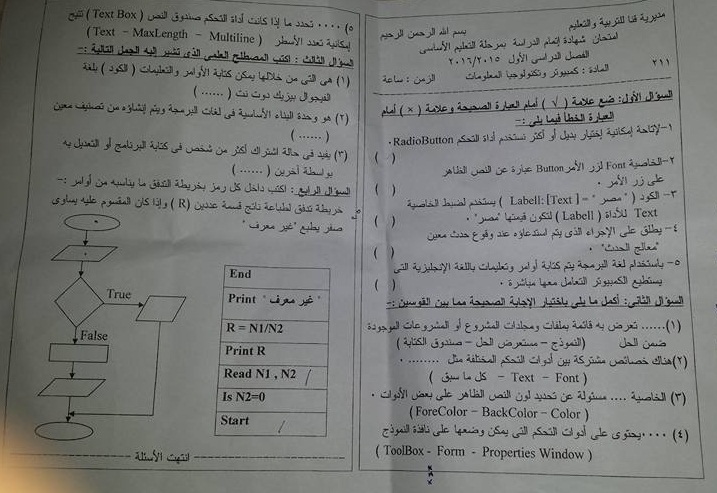 مديرية قنا للتربية والتعليم
بسم الله الرحمن الرحيم
امتحان شهادة إتمام الدراسة بمرحلة التعليم الأساسى
الفصل الدراسى الأول ٢٠١٦/٢٠١٥
٢١١
المادة : كمبيوتر وتكنولوجيا المعلومات الزمن : ساعة
السؤال الأول: ضع علامة ( √ ) أمام العبارة الصحيحة وعلامة ( × ) أمام
العبارة الخطأ فيما يلى :-
١-لإتاحة إمكانية إختيار بديل أو أكثر نستخدم أداة التحكم RadioButton .
( )
٢-الخاصية Font لزر الأمر Button عبارة عن النص الظاهر
على زر الأمر . ( )
٣- الكود ( " مصر " = Label1: [Text ] ) يستخدم لضبط الخاصية
Text للأداة ( Label1 ) لتكون قيمتها "مصر" . ( )
٤- يطلق على الإجراء الذى يتم استدعاؤه عند وقوع حدث معين
"معالج الحدث" . ( )
٥- باستخدام لغة البرمجة يتم كتابة أوامر وتعليمات باللغة الإنجليزية التى
يستطيع الكمبيوتر التعامل معها مباشرة . ( )
السؤال الثانى: أكمل ما يلى باختيار الإجابة الصحيحة مما بين القوسين :-
(١)...... تعرض به قائمة بملفات ومجلدات المشروع أو المشروعات الموجودة
ضمن الحل (النموذج – مستعرض الحل – صندوق الكتابة )
(٢)هناك خصائص مشتركة بين أدوات التحكم المختلفة مثل ........ .
( Text – Font – كل ما سبق )
(٣) الخاصية .... مسئولة عن تحديد لون النص الظاهر على بعض الأدوات .
(ForeColor – BackColor – Color )
(٤) ....يحتوى على أدوات التحكم التى يمكن وضعها على نافذة النموذج
( ToolBox - Form - Properties Window )
٥) .... تحدد ما إذا كانت أداة التحكم صندوق النص ( Text Box ) تتيح
إمكانية تعدد الأسطر ( Text – MaxLength – Multiline )
السؤال الثالث : اكتب المصطلح العلمى الذى تشير إليه الجمل التالية :-
(١) هى التى من خلالها يمكن كتابة الأوامر والتعليمات ( الكود ) بلغة
الفيجوال بيزيك دوت نت ( ...... )
(٢) هو وحدة البناء الأساسية فى لغات البرمجة ويتم إنشاؤه من تصنيف معين
( ...... )
(٣) يفيد فى حالة اشتراك أكثر من شخص فى كتابة البرنامج أو التعديل به
بواسطة آخرين ( ...... )
السؤال الرابع : اكتب داخل كل رمز بخريطة التدفق ما يناسبه من أوامر :-
خريطة تدفق لطباعة ناتج قسمة عددين (R ) وإذا كان المقسوم عليه يساوى
صفر يطبع "غير معرف "
True
False
End
Print " غير معرف "
R = N1/N2
Print R
Read N1 , N2
Is N2=0
Start
انتهت الأسئلة